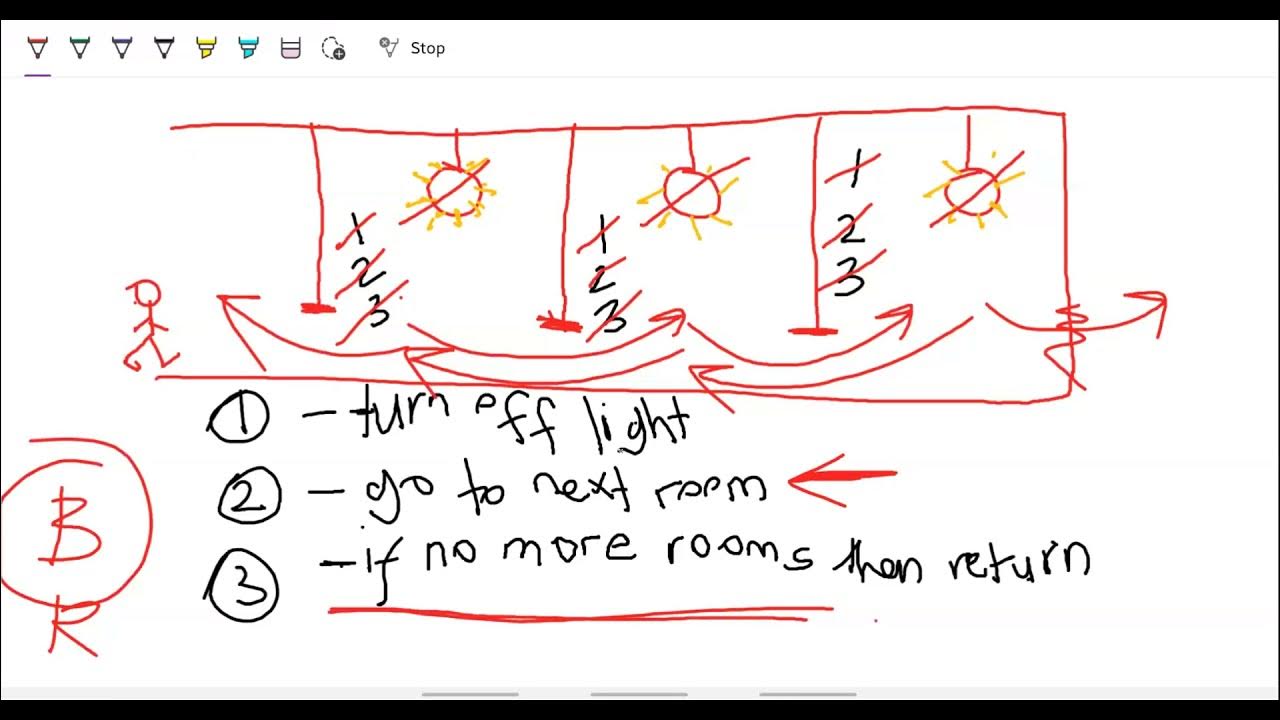 Stop
1 1 1
2 2 2
3 3 3
① – turn off light
② – go to next room
③ – if no more rooms then return
B
R